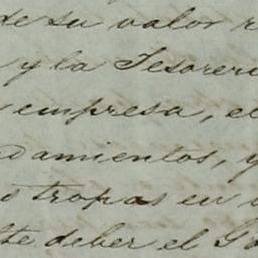 de su valor r
y la Tesoreri
empresa, el
damientos, y
ó tropas en
te deber el Go